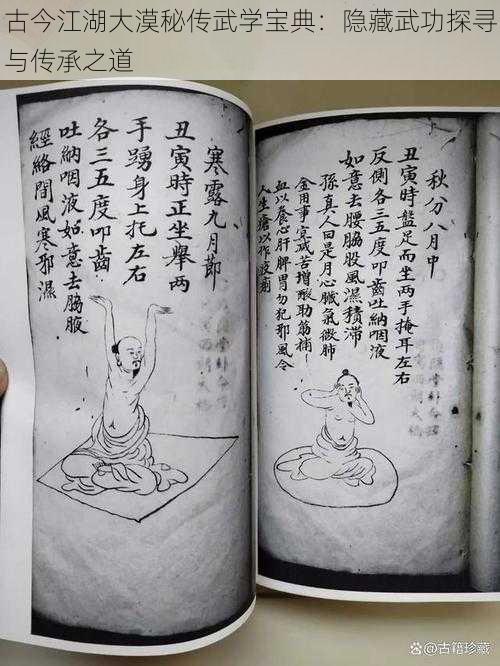 古今江湖大漠秘传武学宝典：隐藏武功探寻
与传承之道
秋分八月中
丑寅時盤足而坐两手掩耳左右
反側各三五度叩齒吐納咽液
如意去腰脇股風濕積滞
孫真人曰是月心臟氣微肺
金用事宜减苦增酸助筋補
血以養心肝脾胃勿犯邪風令
人生瘡以作疫痢
寒露九月節
丑寅時正坐舉两
手踴身上托左右
各三五度叩齒
吐納咽液如意去脇腋
經絡間風寒邪濕
@古籍珍藏